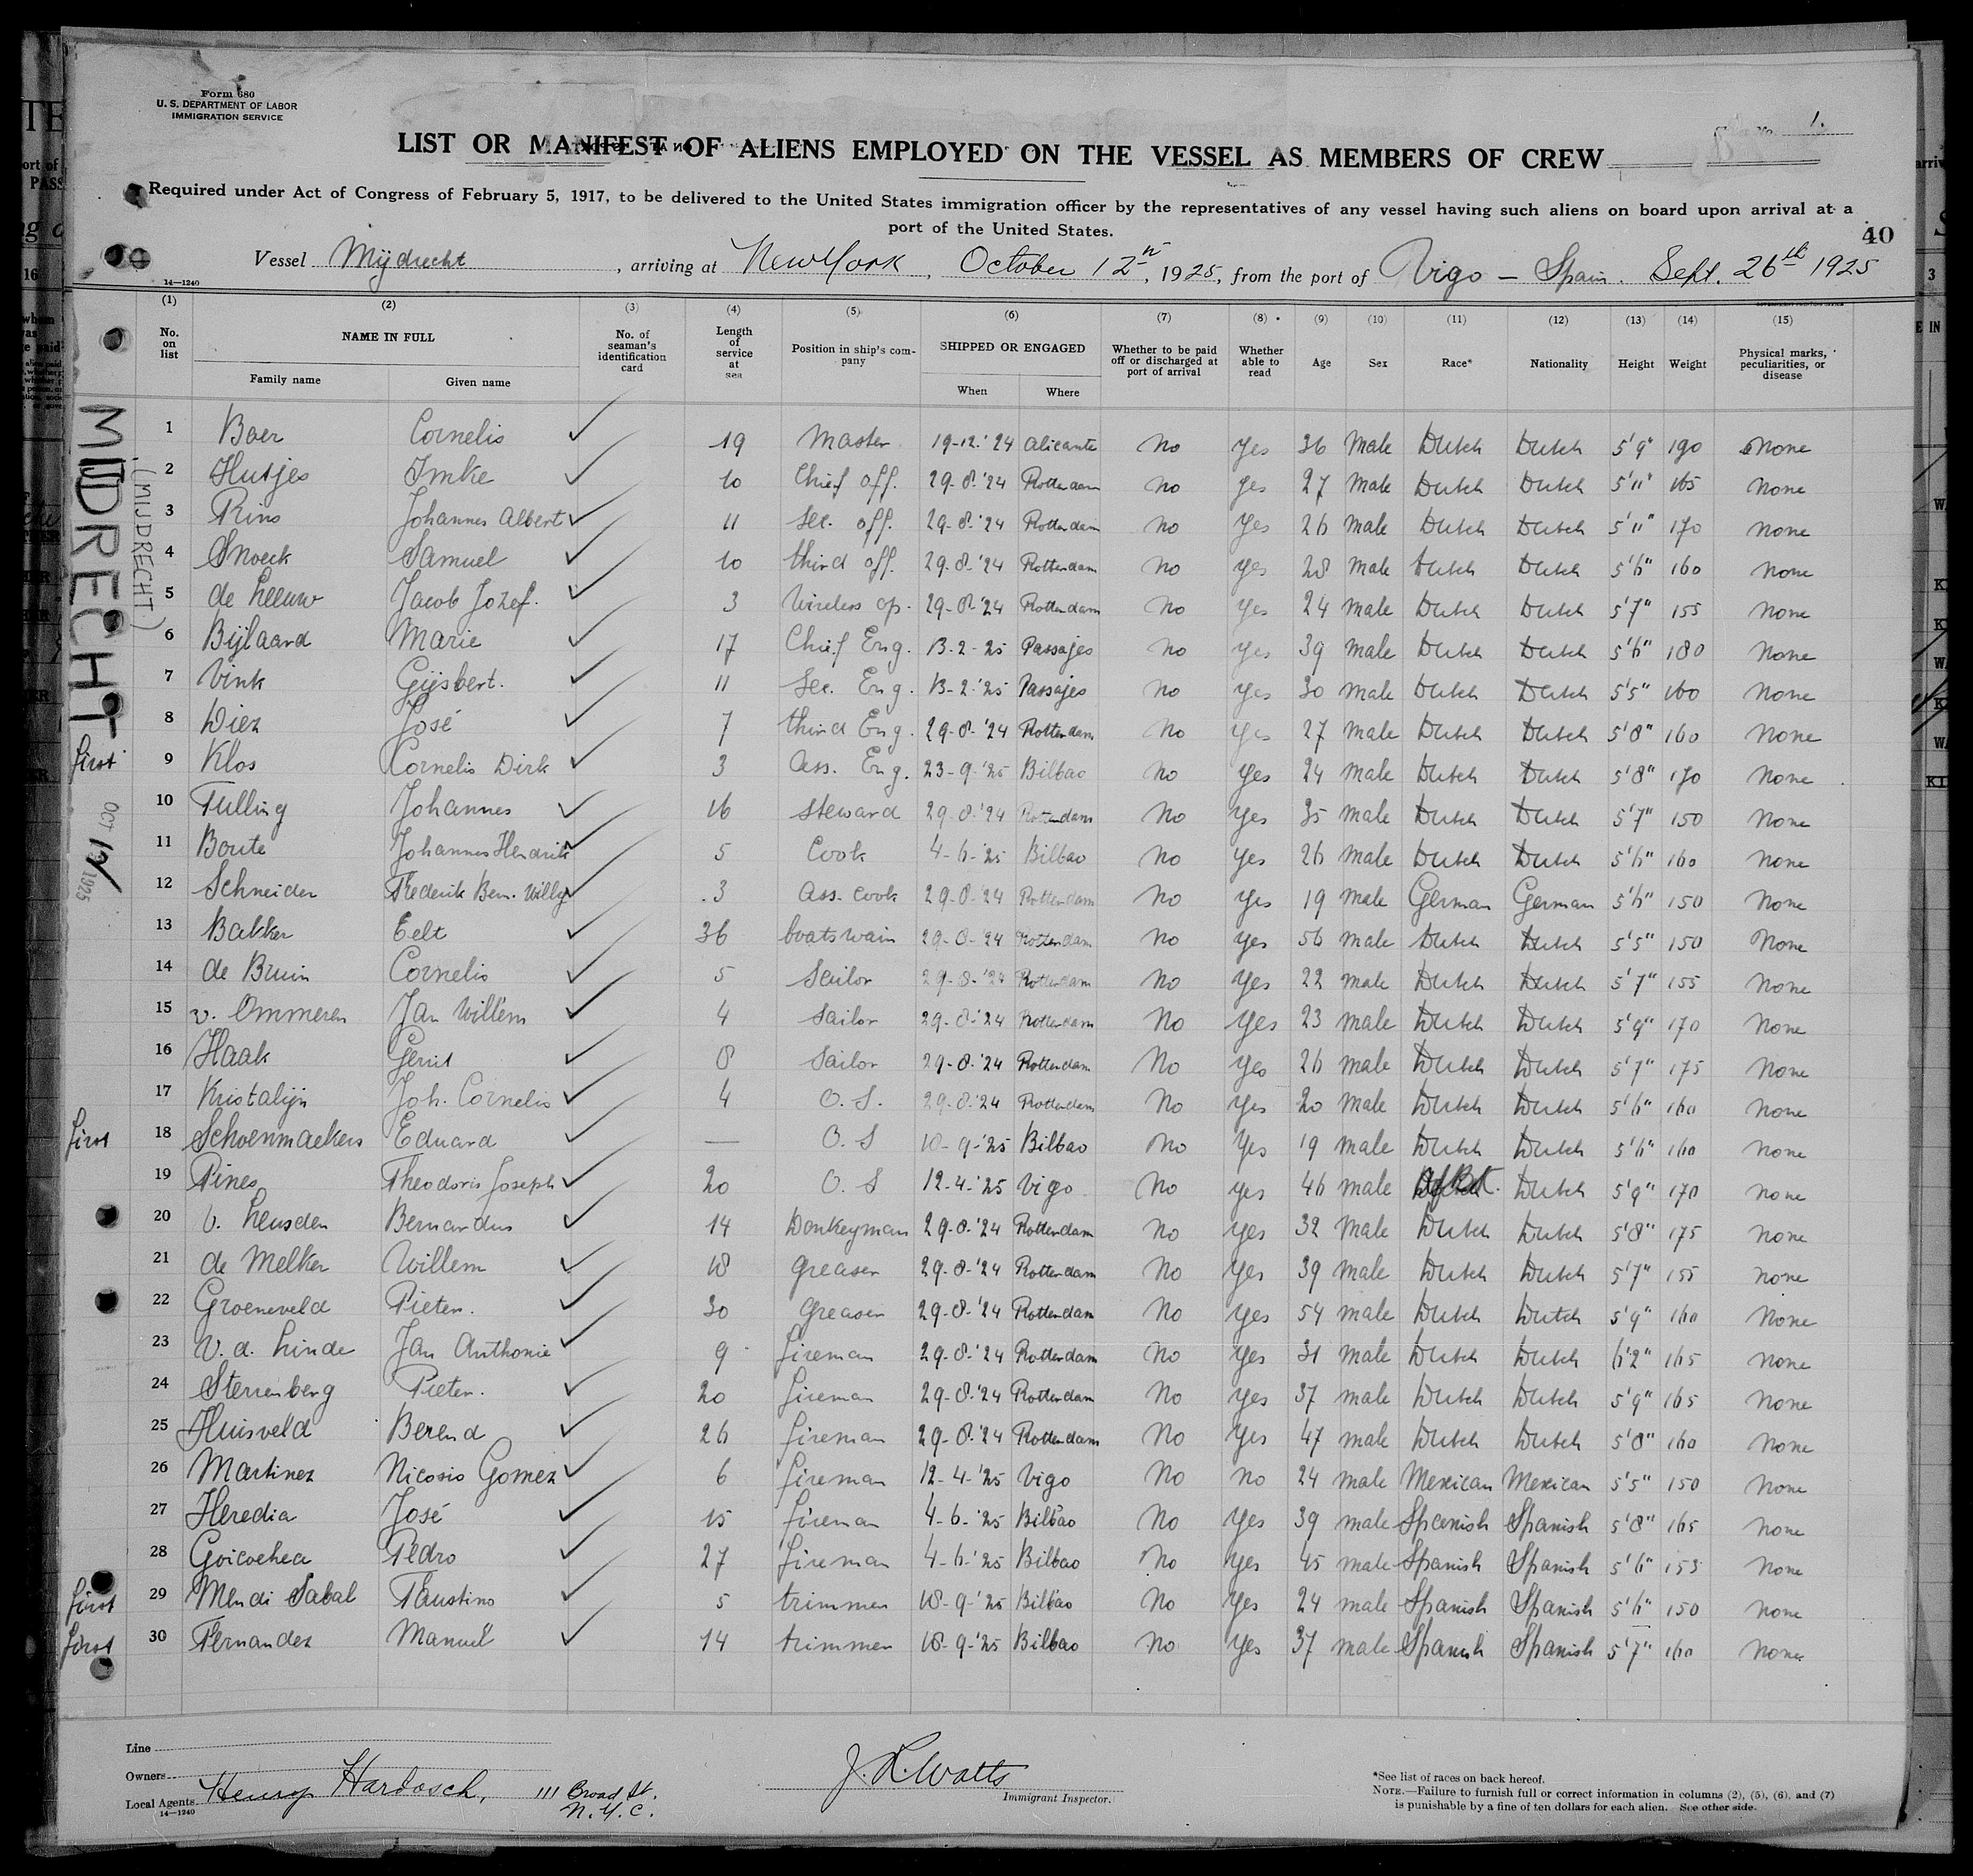 Form 680
U. S. DEPARTMENT OF LABOR
IMMIGRATION SERVICE
No. 1.
LIST OR MANIFEST OF ALIENS EMPLOYED ON THE VESSEL AS MEMBERS OF CREW
Required under Act of Congress of February 5, 1917, to be delivered to the United States immigration officer by the representatives of any vessel having such aliens on board upon arrival at a
port of the United States.
40
Vessel Mijdrecht, arriving at New York, October 12th, 1925, from the port of Vigo - Spain. Sept. 26th 1925
14—1240
(1) (2) (3) (4) (5) (6) (7) (8) (9) (10) (11) (12) (13) (14) (15)
No. on list NAME IN FULL No. of seaman's identification card Length of service at sea Position in ship's company SHIPPED OR ENGAGED Whether to be paid off or discharged at port of arrival Whether able to read Age Sex Race* Nationality Height Weight Physical marks, peculiarities, or disease
Family name Given name When Where
MIJDRECHT
(MIJDRECHT)
OCT 12 1925
1 Boer Cornelis ✓ 19 Master 19-12-'24 Alicante No Yes 36 Male Dutch Dutch 5'9" 190 None
2 Hutjes Imke ✓ 10 Chief off. 29-8-'24 Rotterdam No Yes 27 Male Dutch Dutch 5'11" 165 None
3 Rins Johannes Albert ✓ 11 Sec. off. 29-8-'24 Rotterdam No Yes 26 Male Dutch Dutch 5'11" 170 None
4 Snoeck Samuel ✓ 10 third off. 29-8-'24 Rotterdam No Yes 28 Male Dutch Dutch 5'6" 160 None
5 de Leeuw Jacob Jozef. ✓ 3 Wireless op. 29-8-'24 Rotterdam No Yes 24 Male Dutch Dutch 5'7" 155 None
6 Bijlaard Marie ✓ 17 Chief Eng. 13-2-25 Passajes No Yes 39 Male Dutch Dutch 5'6" 180 None
7 Vink Gijsbert. ✓ 11 Sec. Eng. 13-2-'25 Passajes No Yes 30 Male Dutch Dutch 5'5" 160 None
8 Diez José ✓ 7 third Eng. 29-8-'24 Rotterdam No Yes 27 Male Dutch Dutch 5'8" 160 None
first 9 Klos Cornelis Dirk ✓ 3 Ass. Eng. 23-9-'25 Bilbao No Yes 24 Male Dutch Dutch 5'8" 170 None
10 Tulling Johannes ✓ 16 Steward 29-8-'24 Rotterdam No Yes 35 Male Dutch Dutch 5'7" 150 None
11 Boute Johannes Hendrik ✓ 5 Cook 4-6-'25 Bilbao No Yes 26 Male Dutch Dutch 5'6" 160 None
12 Schneider Frederik Ben. Willy ✓ 3 Ass. Cook 29-8-'24 Rotterdam No Yes 19 Male German German 5'6" 150 None
13 Bakker Eelt ✓ 36 boatswain 29-8-'24 Rotterdam No Yes 56 Male Dutch Dutch 5'5" 150 None
14 de Bruin Cornelis ✓ 5 Sailor 29-8-'24 Rotterdam No Yes 22 Male Dutch Dutch 5'7" 155 None
15 v. Ommeren Jan Willem ✓ 4 Sailor 29-8-'24 Rotterdam No Yes 23 male Dutch Dutch 5'9" 170 None
16 Haak Gerrit ✓ 8 Sailor 29-8-'24 Rotterdam No Yes 26 male Dutch Dutch 5'7" 175 None
17 Kristalijn Joh. Cornelis ✓ 4 O. S. 29-8-'24 Rotterdam No Yes 20 Male Dutch Dutch 5'6" 160 None
first 18 Schoenmaekers Eduard ✓ — O. S 18-9-'25 Bilbao No Yes 19 male Dutch Dutch 5'6" 160 None
19 Pines Theodoris Joseph ✓ 20 O. S 12-4-'25 Vigo No yes 46 male Dutch 5'9" 170 None
20 v. Leusden Bernardus ✓ 14 Donkeyman 29-8-'24 Rotterdam No Yes 32 Male Dutch Dutch 5'8" 175 None
21 de Melker Willem ✓ 18 greaser 29-8-'24 Rotterdam No Yes 39 male Dutch Dutch 5'7" 155 None
22 Groeneveld Pieter. ✓ 30 greaser 29-8-'24 Rotterdam No Yes 54 male Dutch Dutch 5'9" 160 None
23 V. d. Linde Jan Anthonie ✓ 9 fireman 29-8-'24 Rotterdam No Yes 31 male Dutch Dutch 6'2" 165 None
24 Sterrenberg Pieter. ✓ 20 fireman 29-8-'24 Rotterdam No Yes 37 male Dutch Dutch 5'9" 165 None
25 Huisveld Berend ✓ 26 fireman 29-8-'24 Rotterdam No Yes 47 male Dutch Dutch 5'8" 160 None
26 Martinez Nicosio Gomez ✓ 6 fireman 12-4-'25 Vigo No No 24 male Mexican Mexican 5'5" 150 None
27 Heredia José ✓ 15 fireman 4-6-'25 Bilbao No Yes 39 male Spanish Spanish 5'8" 165 None
28 Goicoehea Pedro ✓ 27 fireman 4-6-'25 Bilbao No Yes 45 male Spanish Spanish 5'6" 155 None
first 29 Mendi Sabal Faustino ✓ 5 trimmer 18-9-'25 Bilbao No Yes 24 male Spanish Spanish 5'6" 150 None
first 30 Fernandez Manuel ✓ 14 trimmer 18-9-'25 Bilbao No Yes 37 male Spanish Spanish 5'7" 160 None
Line
Owners
Local Agents Henry Hardosch, 111 Broad St. N.Y.C.
14—1240
J. L. Watts
Immigrant Inspector.
*See list of races on back hereof.
NOTE.—Failure to furnish full or correct information in columns (2), (5), (6), and (7)
is punishable by a fine of ten dollars for each alien. See other side.